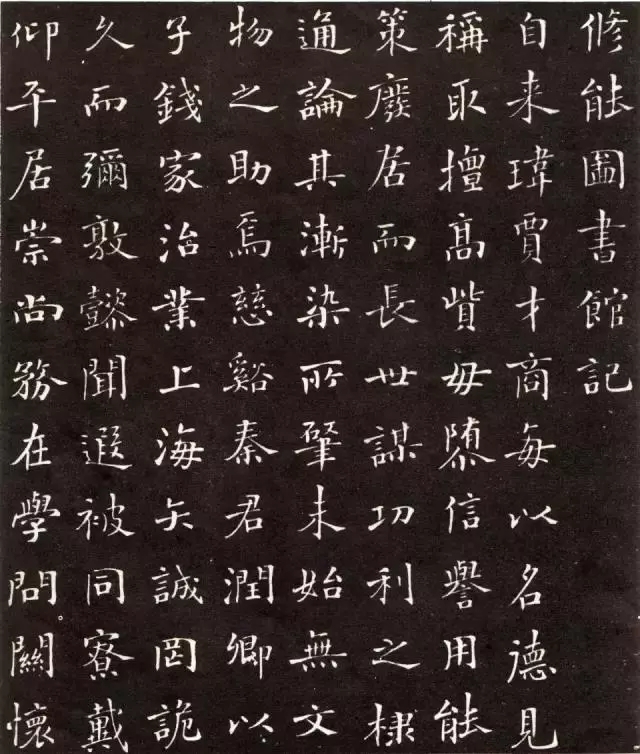 修能圖書館記
自来瑋賈才商每以名德見
稱取擅高貲毋隳信譽用能
策廢居而長世謀功利之棣
通論其漸染所肇未始無文
物之助焉慈谿秦君潤卿以
子錢家治業上海矢誠罔詭
久而彌敦懿聞遐被同寮戴
仰平居崇尚務在學問。關懷